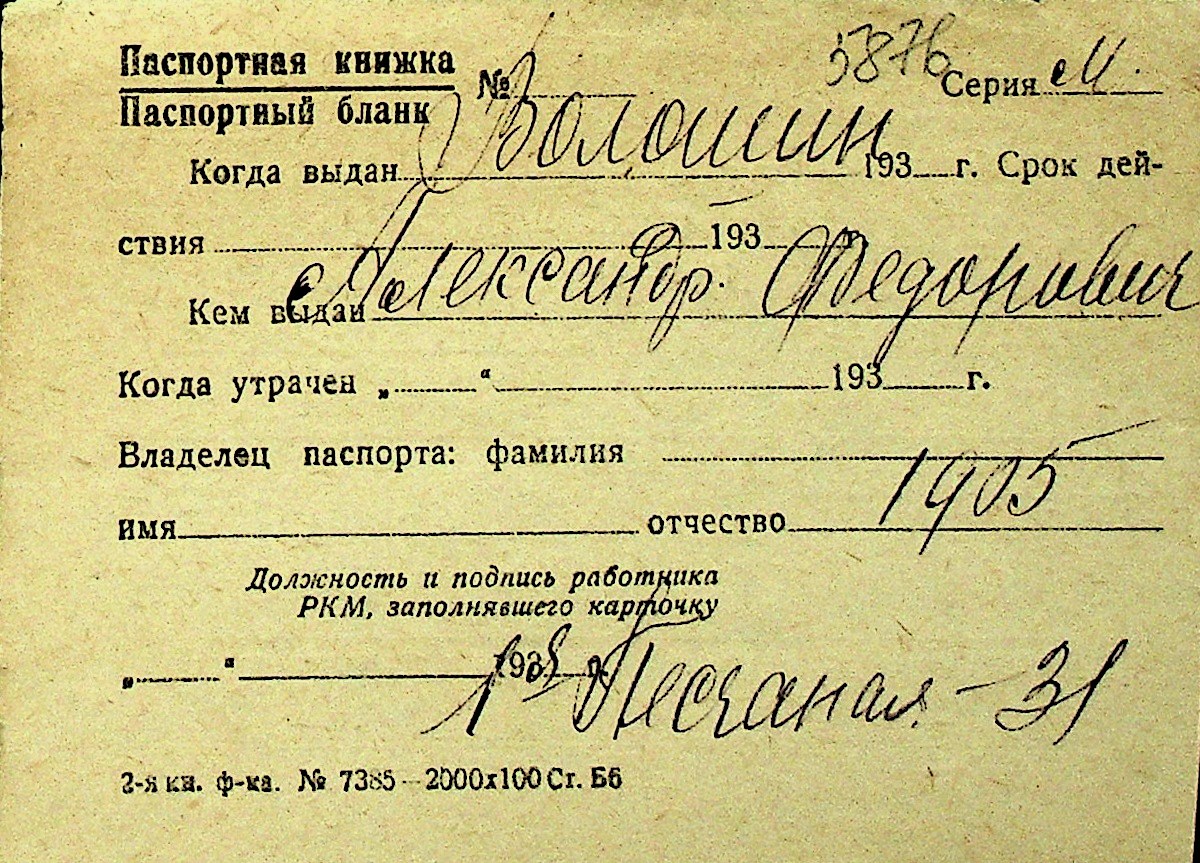 Паспортная книжка
Паспортный бланк
№ 5876 Серия М.
Волошин
Когда выдан 193 г. Срок дей-
ствия 193 г.
Александр. Федорович
Кем выдан
Когда утрачен „ “ 193 г.
Владелец паспорта: фамилия
1905
имя отчество
Должность и подпись работника
РКМ, заполнявшего карточку
„ “ 193 г.
1ая Песчаная – 31
2-я кн. ф-ка. № 7385—2000х100 Ст. Б6